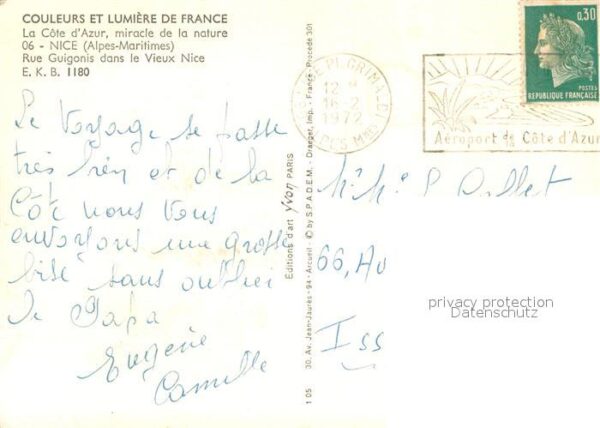 COULEURS ET LUMIÈRE DE FRANCE
La Côte d'Azur, miracle de la nature
06 - NICE (Alpes-Maritimes)
Rue Guigonis dans le Vieux Nice
E. K. B. 1180
Le Voyage se passe
très bien et de la
Côte nous vous
envoyons une grosse
bise sans oublier
le Papa
Eugénie
Camille
Editions d'art Yvon PARIS
30, Av. Jean-Jaurès - 94 - Arcueil - © by S.P.A.D.E.M. - Draeger, Imp. - France - Procédé 301
1 05
12 H
16-2
1972
Aéroport de la Côte d'Azur
0,30
POSTES
REPUBLIQUE FRANÇAISE
66, Av
Iss
privacy protection
Datenschutz